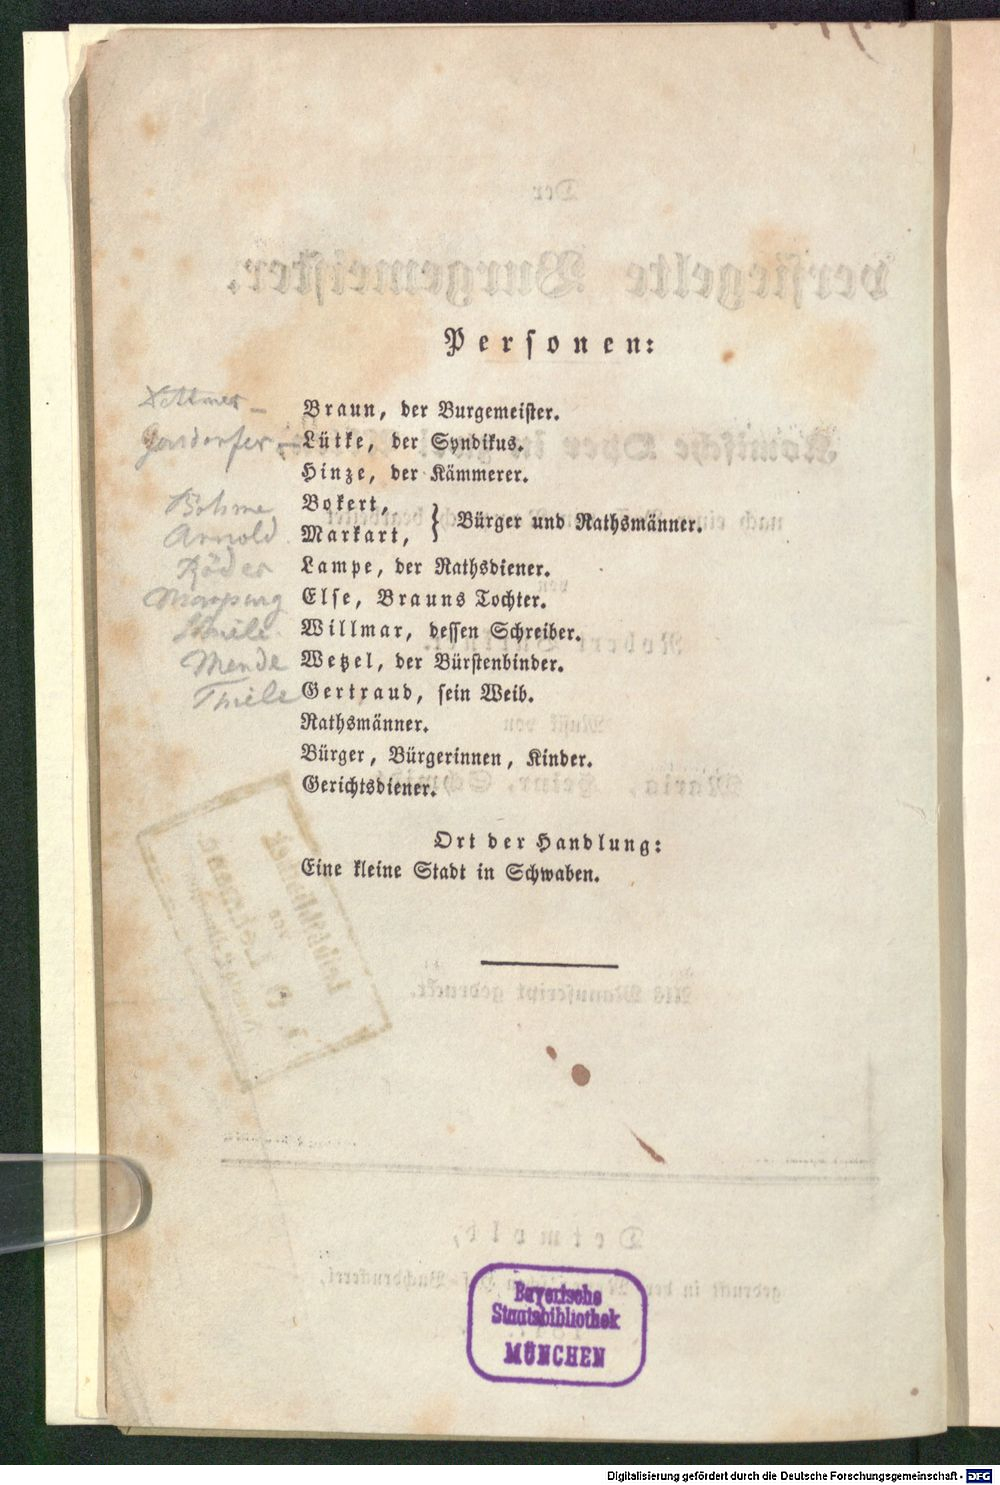 Personen:
Dettmer – Braun, der Burgemeister.
Gerstorfer – Lütke, der Syndikus.
Hinze, der Kämmerer.
Böhme Bokert,
Arnold Markart, } Bürger und Rathsmänner.
Röder Lampe, der Rathsdiener.
Marpurg Else, Brauns Tochter.
Willmar, dessen Schreiber.
Mende Wetzel, der Bürstenbinder.
Thiele Gertraud, sein Weib.
Rathsmänner.
Bürger, Bürgerinnen, Kinder.
Gerichtsdiener.
Ort der Handlung:
Eine kleine Stadt in Schwaben.
Bayerische
Staatsbibliothek
MÜNCHEN
Digitalisierung gefördert durch die Deutsche Forschungsgemeinschaft - DFG